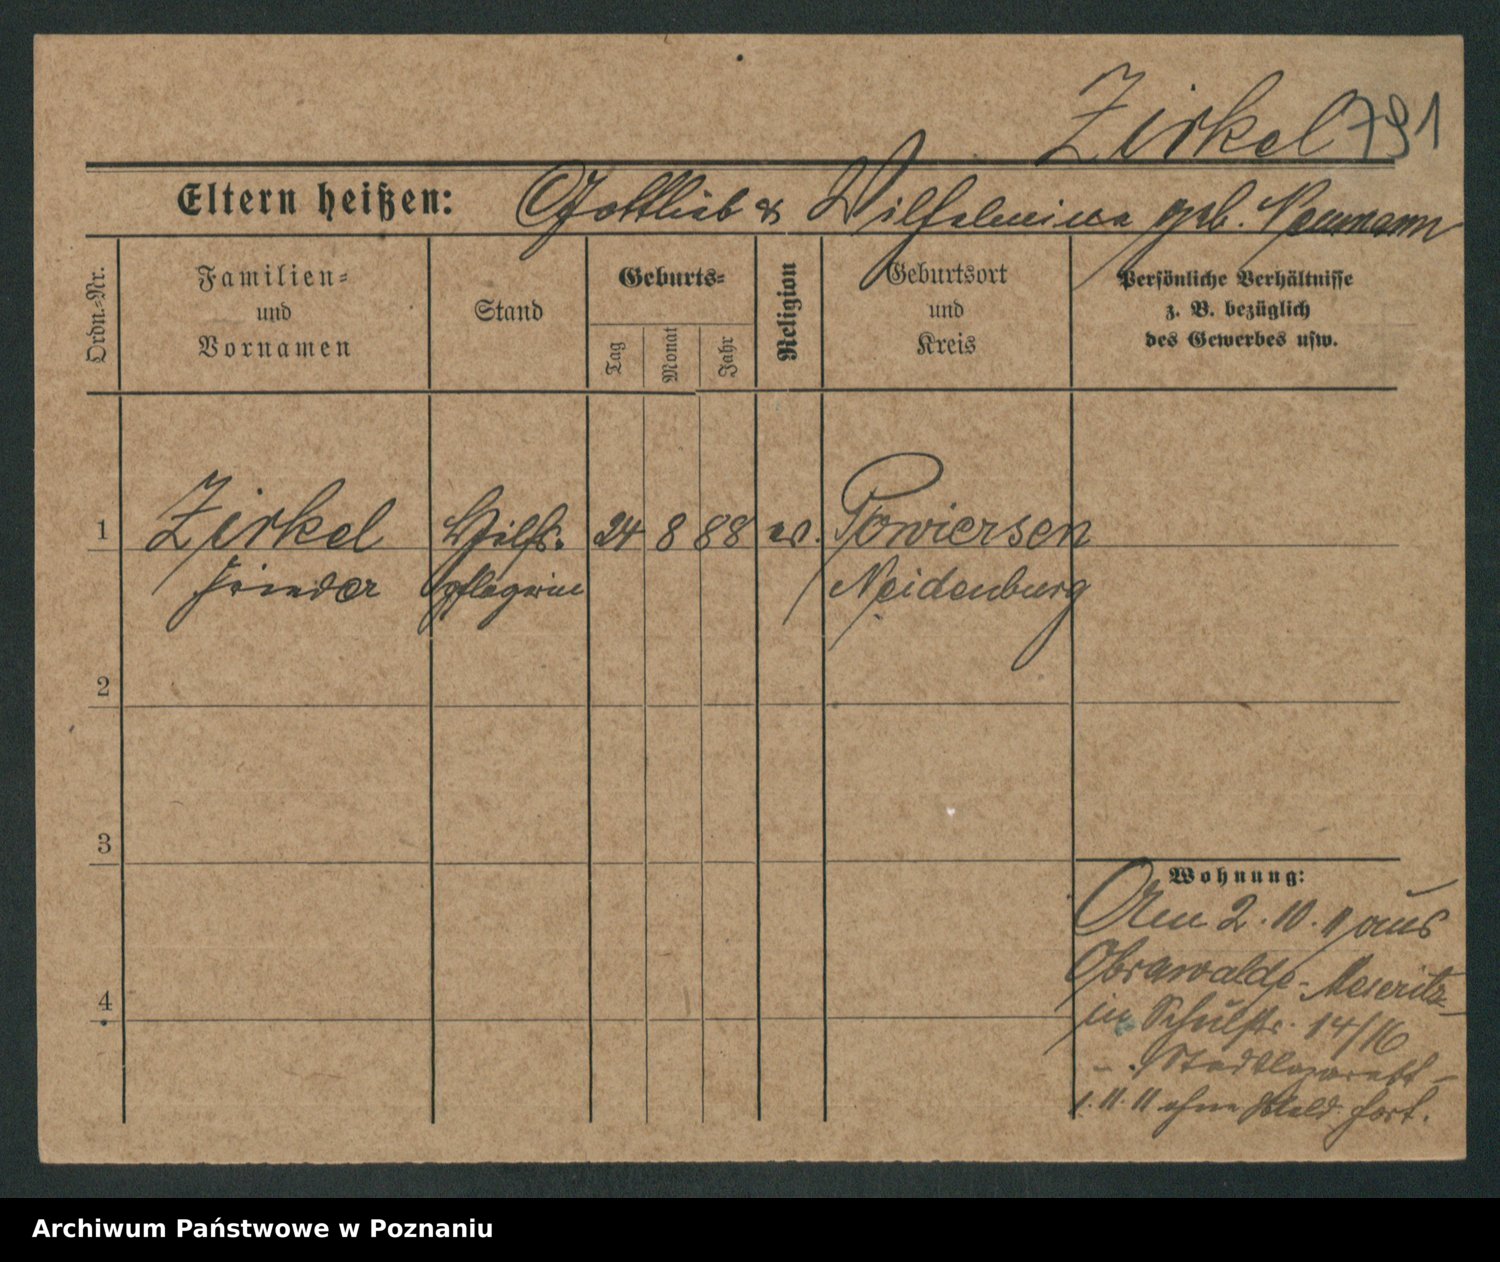 Zirkel 791
Eltern heißen: Gottlieb & Wilhelmina geb. Neumann
Ordn.-Nr.
Familien-
und
Vornamen
Stand
Geburts-
Tag
Monat
Jahr
Religion
Geburtsort
und
Kreis
Persönliche Verhältnisse
z. B. bezüglich
des Gewerbes usw.
1 Zirkel Hilfs- 24 8 88 ev. Powiersen
pflegerin Neidenburg
2
3
4
Wohnung:
Am 2.10.11 aus
Obrawalde-Meseritz
in Schulstr. 14/16
- Stadtlazarett -
1.11.11 ohne Meld. fort.
Archiwum Państwowe w Poznaniu